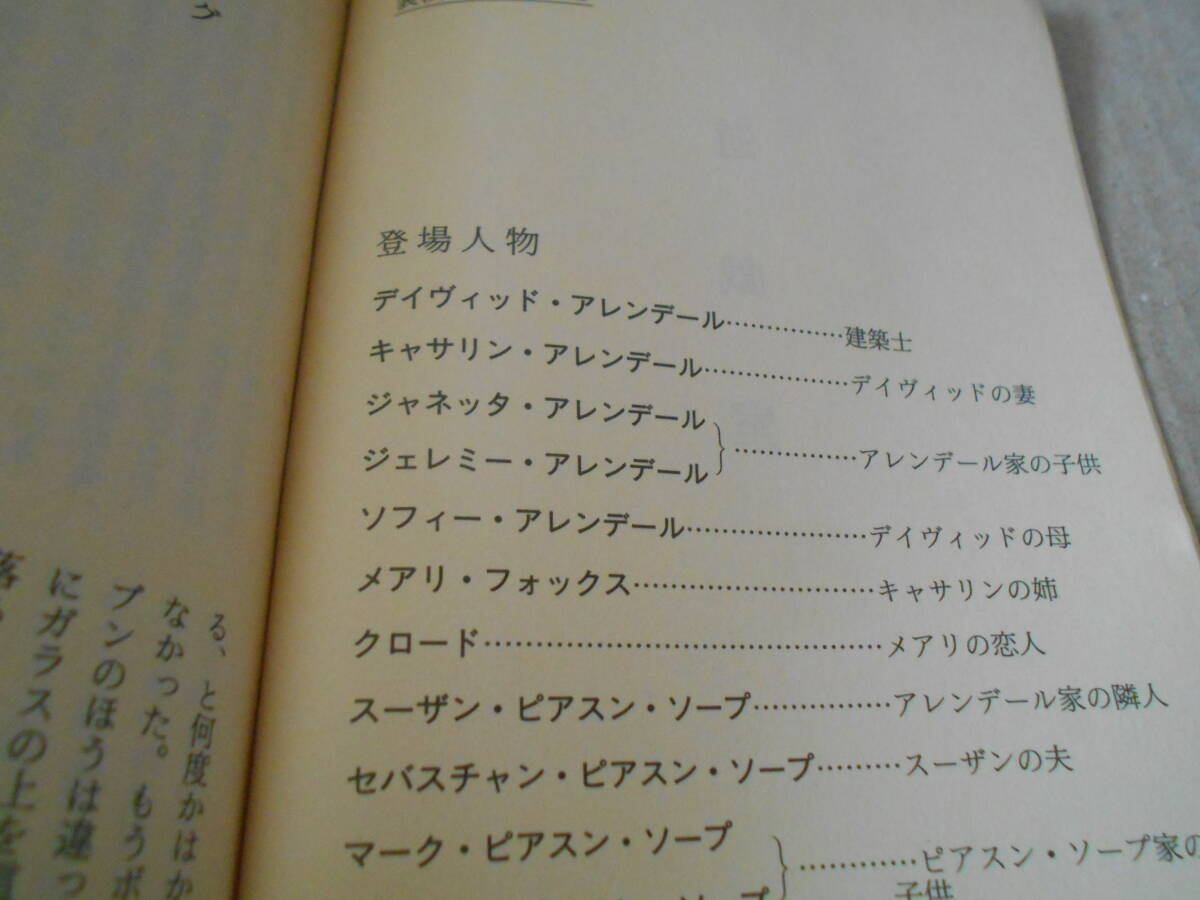 登場人物
デイヴィッド・アレンデール……………建築士
キャサリン・アレンデール…………………デイヴィッドの妻
ジャネッタ・アレンデール
ジェレミー・アレンデール
……………アレンデール家の子供
ソフィー・アレンデール…………………デイヴィッドの母
メアリ・フォックス………………………キャサリンの姉
クロード………………………………………メアリの恋人
スーザン・ピアスン・ソープ……………アレンデール家の隣人
セバスチャン・ピアスン・ソープ………スーザンの夫
マーク・ピアスン・ソープ
…………ピアスン・ソープ家の
子供
ソープ
る、と何度かはか
なかった。もうボ
プンのほうは違っ
にガラスの上を